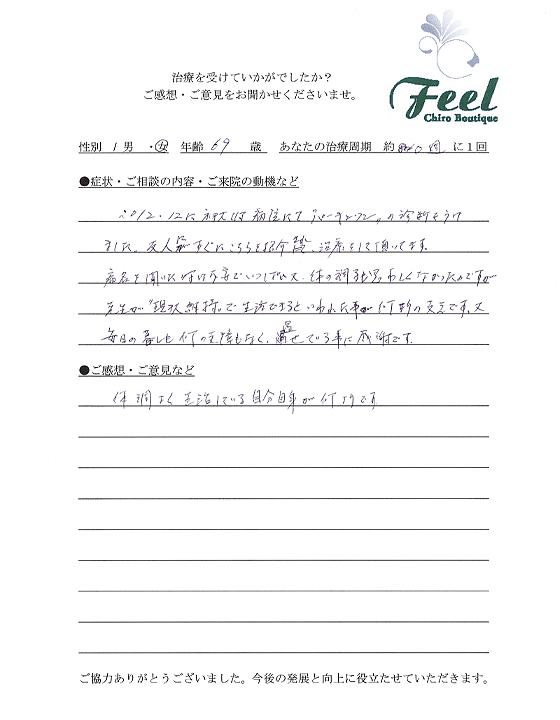 治療を受けていかがでしたか？
ご感想・ご意見をお聞かせくださいませ。
Feel
Chiro Boutique
性別 / 男 ・女 年齢 69 歳 あなたの治療周期 約 週 に1回
●症状・ご相談の内容・ご来院の動機など
2012.12に 病院にて "パーキンソン" の診断をうけ
ました。友人に すぐにこちらを紹介 治療をして頂いてます。
病名を聞いた 不安でいっぱいで 体の調子も わしくなかったのですが
先生が"現状維持"で生活できるといわれた事が何よりの支えです。又
毎日の暮しも何の支障もなく、過せている事に感謝です。
●ご感想・ご意見など
体調よく生活している自分自身が何よりです
ご協力ありがとうございました。今後の発展と向上に役立たせていただきます。